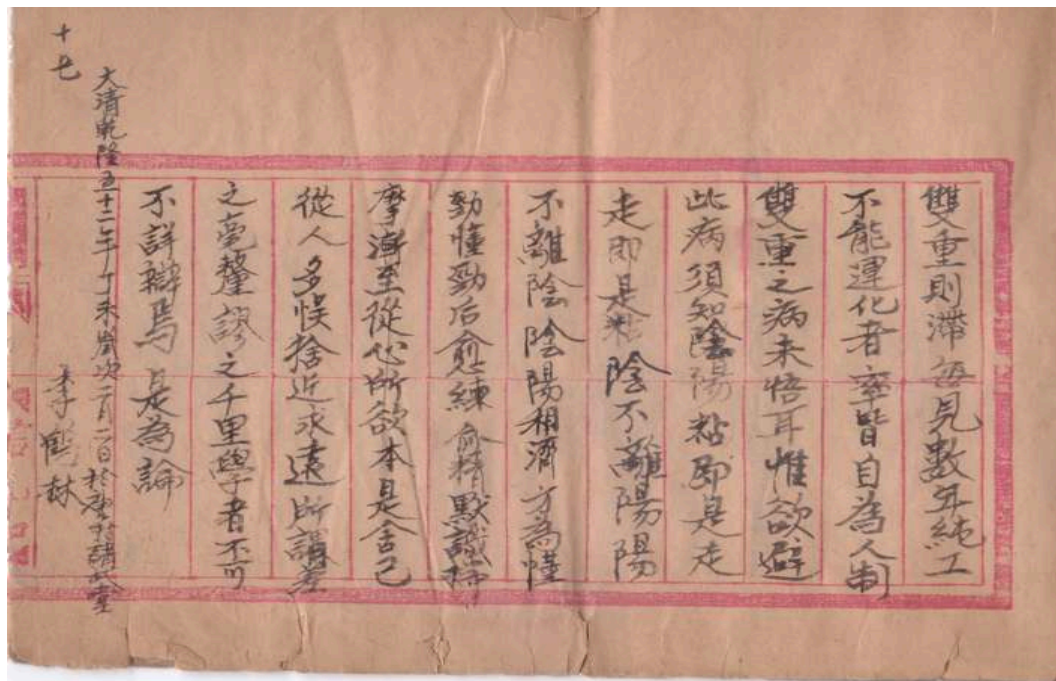 雙重則滯每見數年純工
不能運化者率皆自為人制
雙重之病未悟耳惟欲避
此病須知陰陽粘即是走
走即是粘陰不離陽陽
不離陰陰陽相濟方為懂
勁懂勁后愈練愈精默識揣
摩漸至從心所欲本是舍己
從人多悮捨近求遠所謂差
之毫釐謬之千里學者不可
不詳辯焉 是為論
大清乾隆五十二年丁未歲次二月二日於
李鶴林
十七